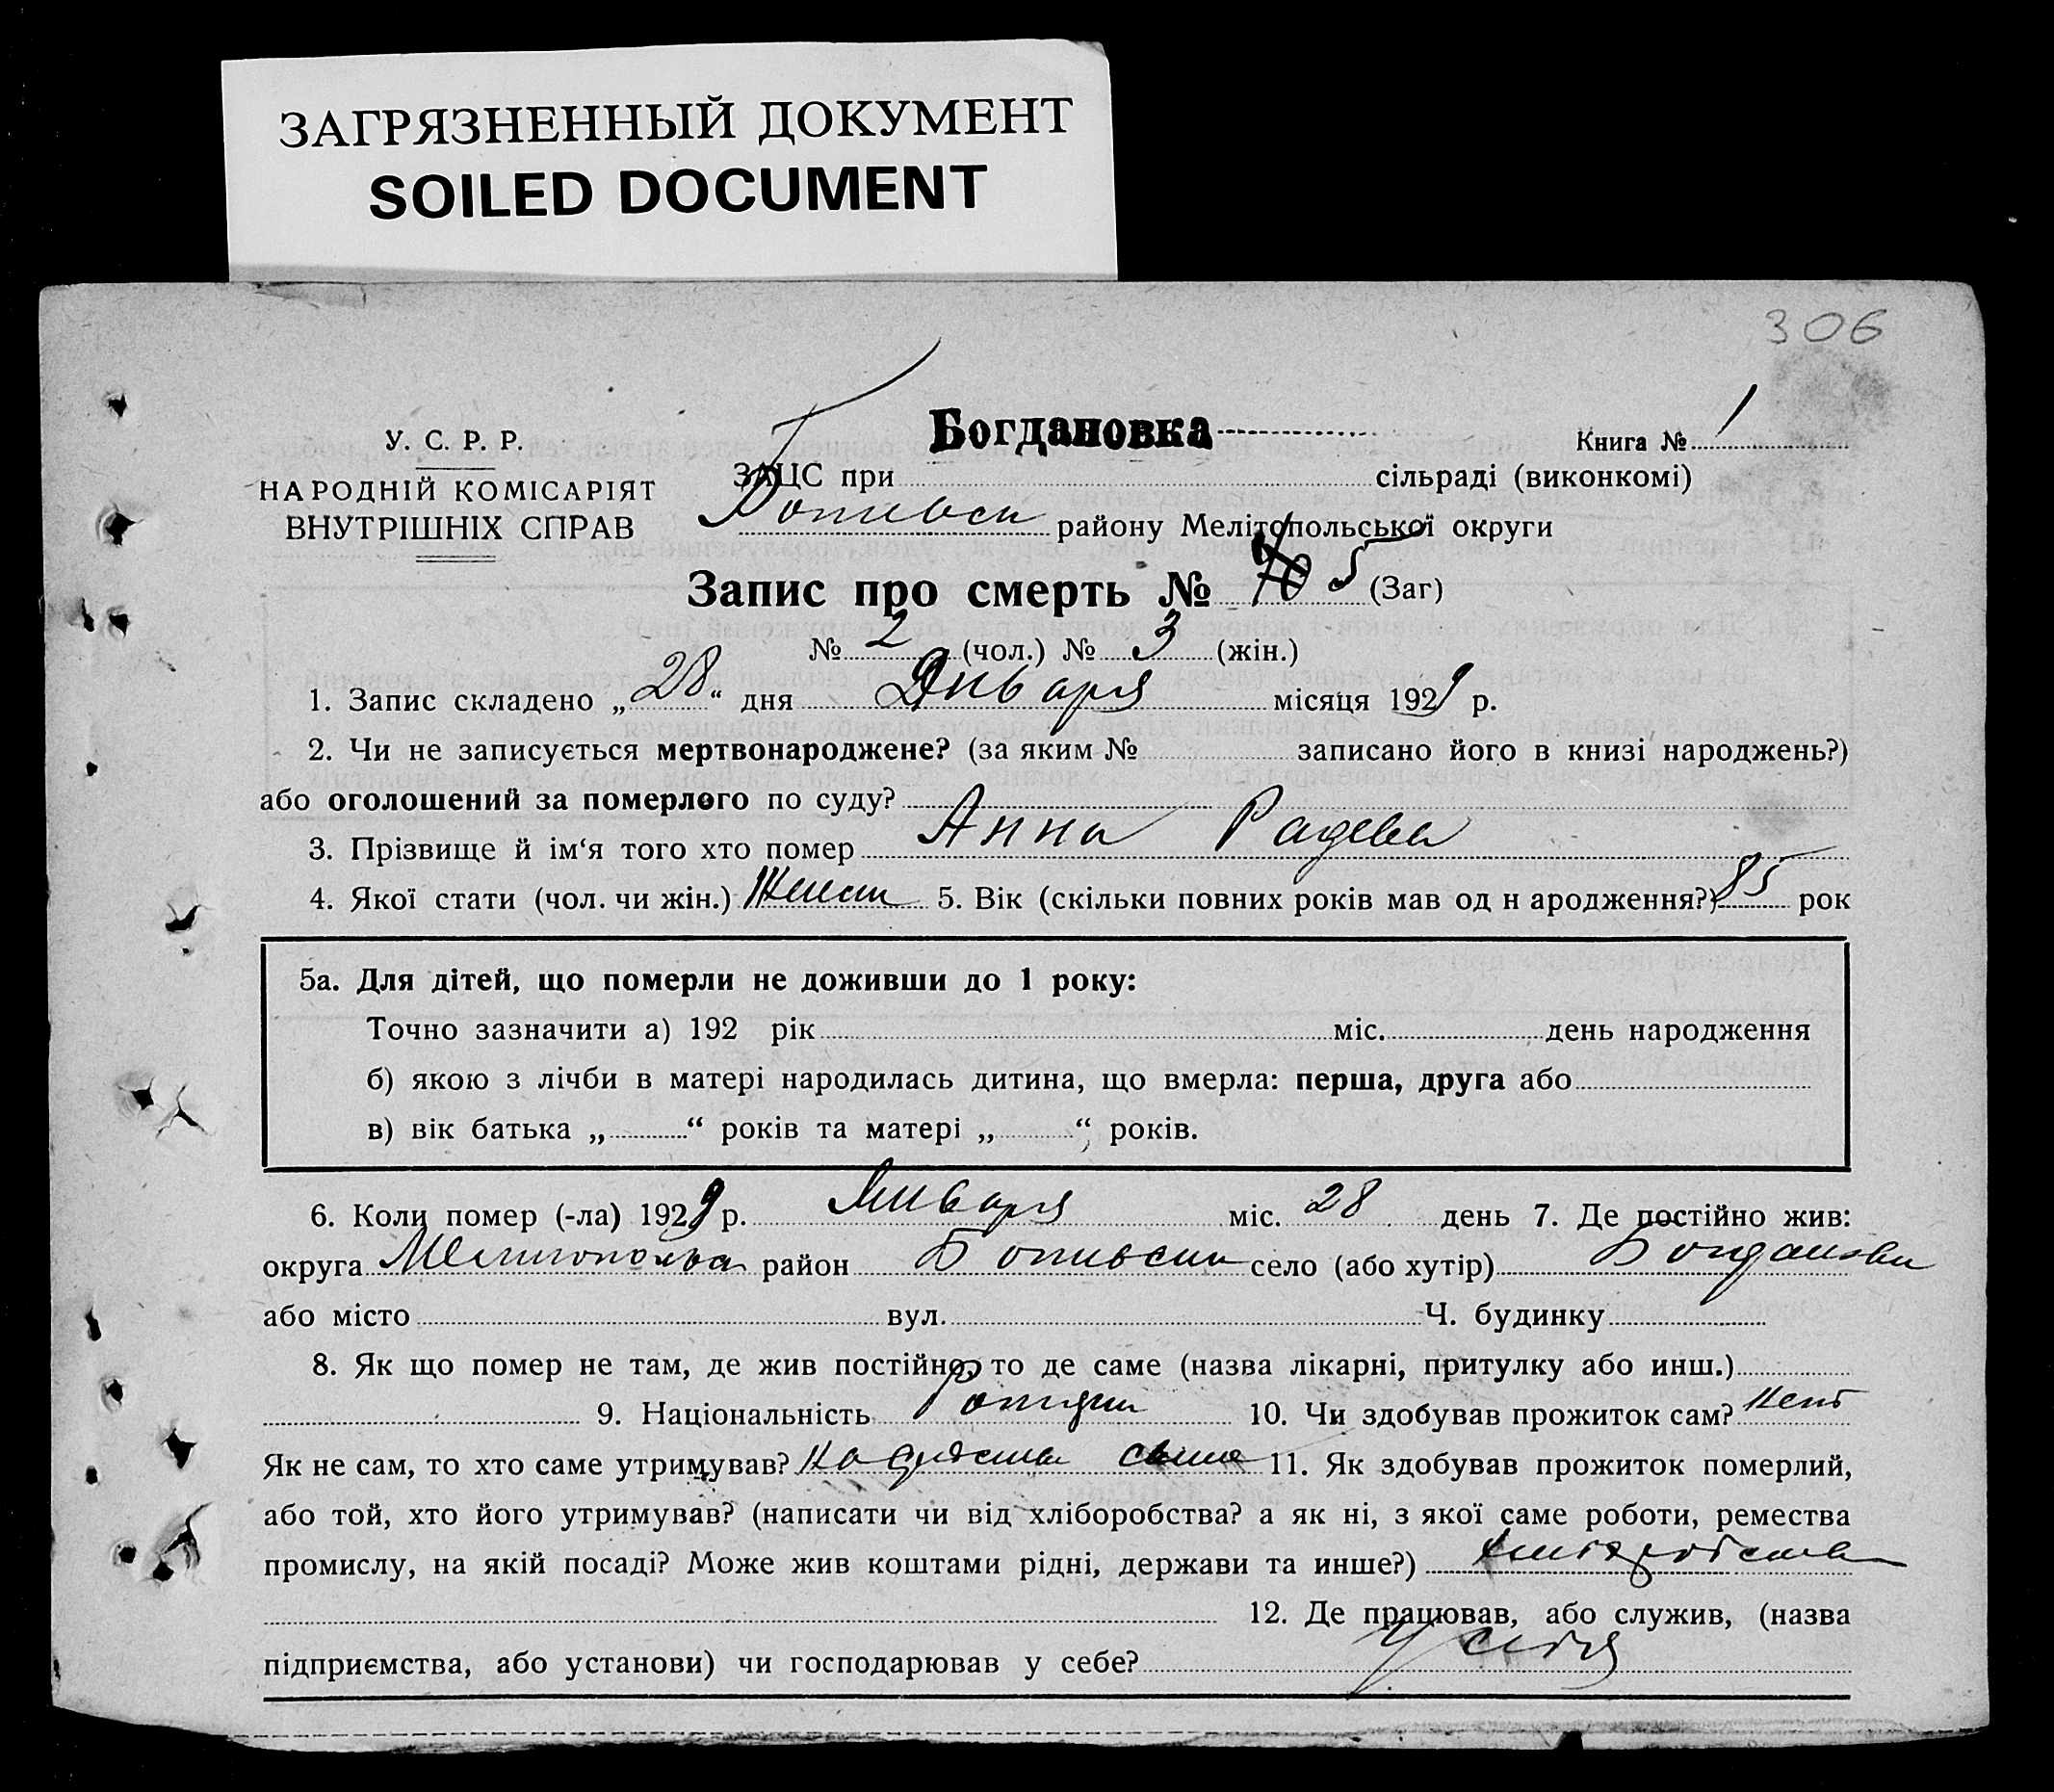 ЗАГРЯЗНЕННЫЙ ДОКУМЕНТ
SOILED DOCUMENT
306
У. С. Р. Р.
НАРОДНІЙ КОМІСАРІЯТ
ВНУТРІШНІХ СПРАВ
Богдановка
Книга № 1
ЗАЦС при сільраді (виконкомі)
району Мелітопольської округи
Запис про смерть № 5 (Заг)
№ 2 (чол.) № 3 (жін.)
1. Запис складено „28“ дня Января місяця 1929 р.
2. Чи не записується мертвонароджене? (за яким № записано його в книзі народжень?)
або оголошений за померлого по суду?
3. Прізвище й ім‘я того хто помер Анна Радева
4. Якої стати (чол. чи жін.) 5. Вік (скільки повних років мав од н ародження?) 85 рок
5а. Для дітей, що померли не доживши до 1 року:
Точно зазначити а) 192 рік міс. день народження
б) якою з лічби в матері народилась дитина, що вмерла: перша, друга або
в) вік батька „ “ років та матері „ “ років.
6. Коли помер (-ла) 1929 р. Января міс. 28 день 7. Де постійно жив:
округа район село (або хутір)
або місто вул. Ч. будинку
8. Як що помер не там, де жив постійно, то де саме (назва лікарні, притулку або инш.)
9. Національність 10. Чи здобував прожиток сам? нет
Як не сам, то хто саме утримував? 11. Як здобував прожиток померлий,
або той, хто його утримував? (написати чи від хліборобства? а як ні, з якої саме роботи, ремества
промислу, на якій посаді? Може жив коштами рідні, держави та инше?)
12. Де працював, або служив, (назва
підприємства, або установи) чи господарював у себе? У себя